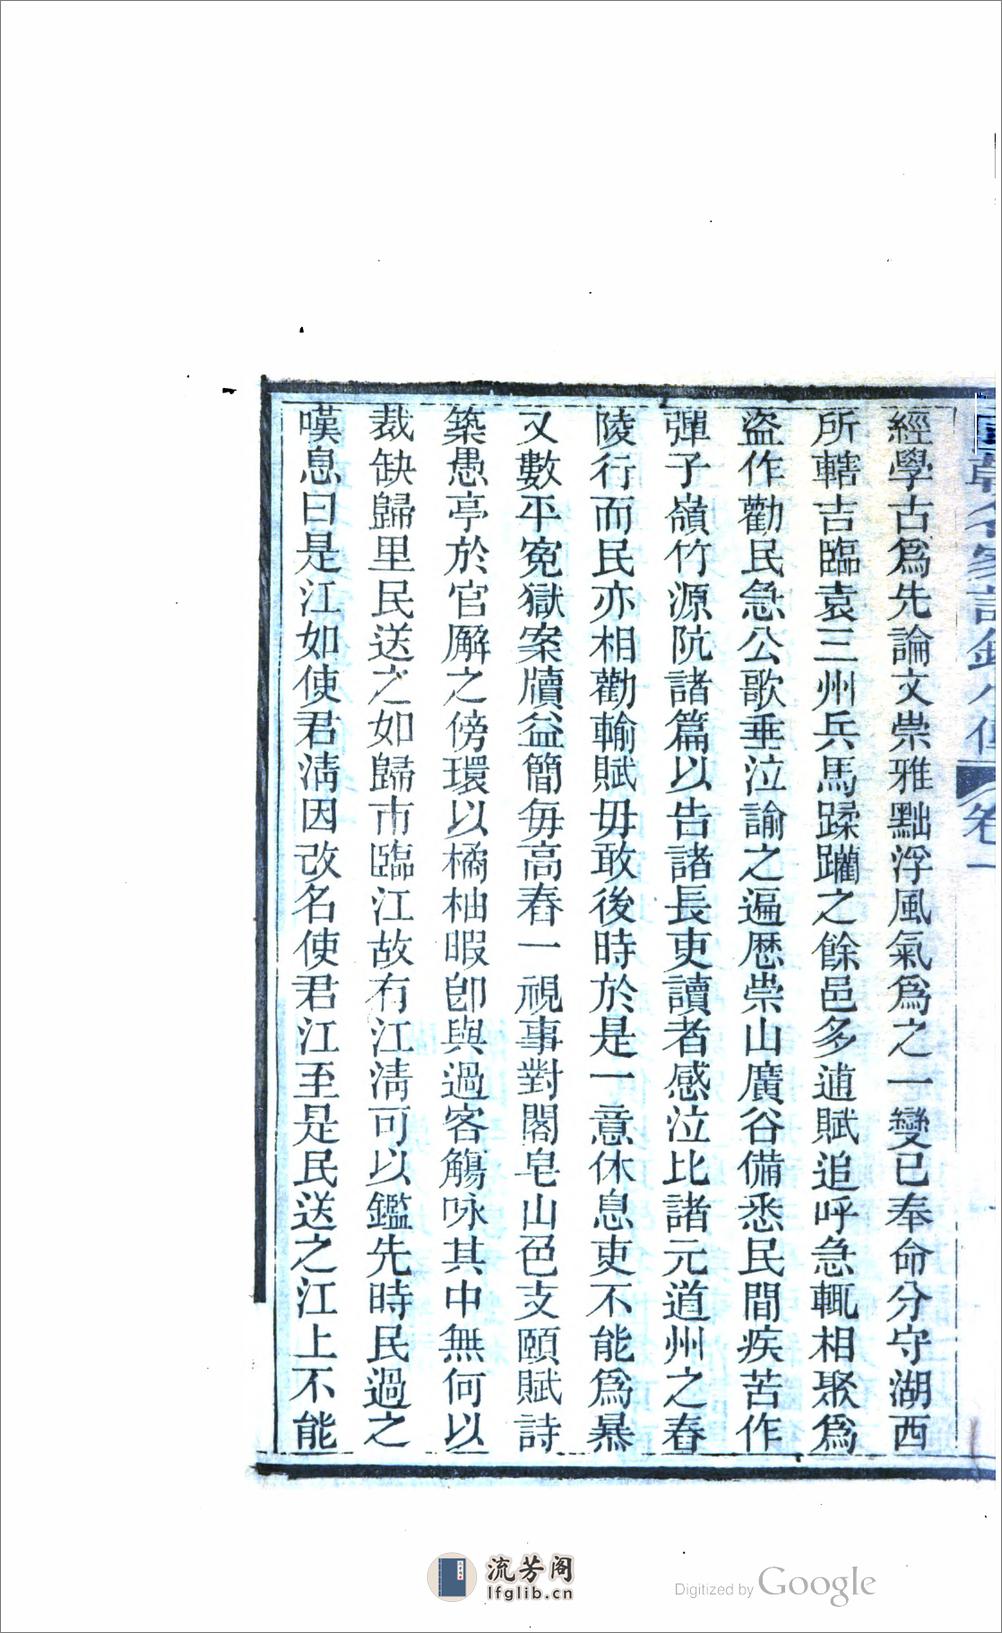 國朝名家詩鈔小傳 卷一
經學古爲先論文崇雅黜浮風氣爲之一變已奉命分守湖西
所轄吉臨袁三州兵馬蹂躪之餘邑多逋賦追呼急輒相聚爲
盜作勸民急公歌垂泣諭之遍歷崇山廣谷備悉民間疾苦作
彈子嶺竹源阬諸篇以告諸長吏讀者感泣比諸元道州之舂
陵行而民亦相勸輸賦毋敢後時於是一意休息吏不能爲暴
又數平寃獄案牘益簡每高舂一視事對閣皂山色支頤賦詩
築愚亭於官廨之傍環以橘柚暇卽與過客觴咏其中無何以
裁缺歸里民送之如歸市臨江故有江淸可以鑑先時民過之
嘆息曰是江如使君淸因改名使君江至是民送之江上不能
流芳阁
lfglib.cn
Digitized by Google